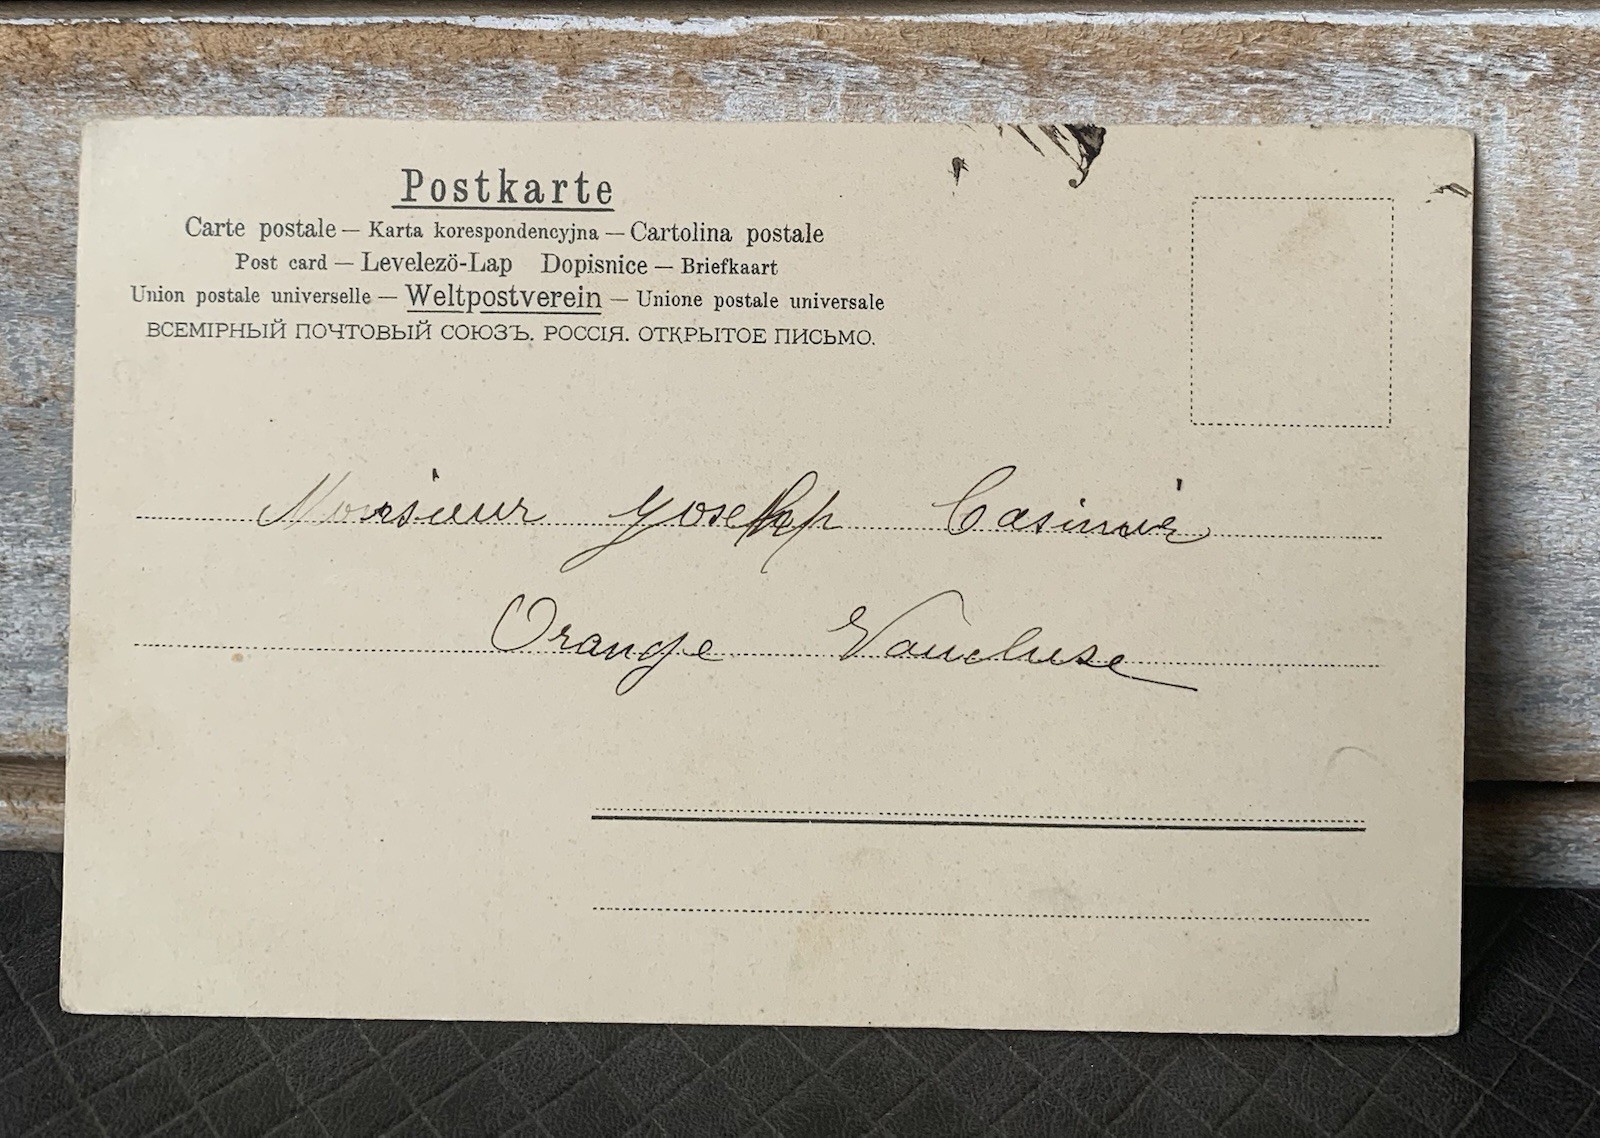 Postkarte
Carte postale — Karta korespondencyjna — Cartolina postale
Post card — Levelezö-Lap Dopisnice — Briefkaart
Union postale universelle — Weltpostverein — Unione postale universale
ВСЕМІРНЫЙ ПОЧТОВЫЙ СОЮЗЪ. РОССІЯ. ОТКРЫТОЕ ПИСЬМО.
Monsieur Joseph Casimir
Orange Vaucluse